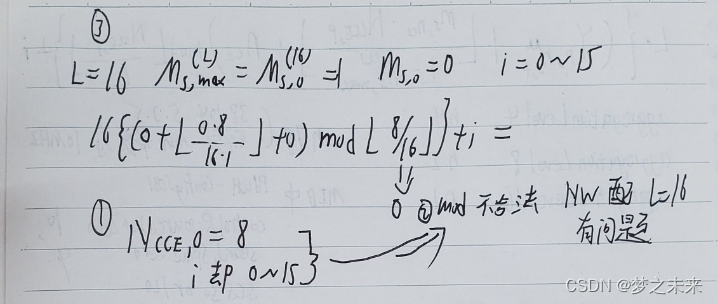 ③
L=16 M_{s,max}^{(L)} = M_{s,0}^{(16)} = 1 m_{s,0}=0 i=0~15
16{(0+⌊\frac{0·8}{16·1}⌋+0) mod ⌊8/16⌋}+i =
⇓
0 ② mod 不合法 NW 配 L=16
有问题
① N_{CCE,0} = 8
i 去P 0~15
CSDN @梦之未来